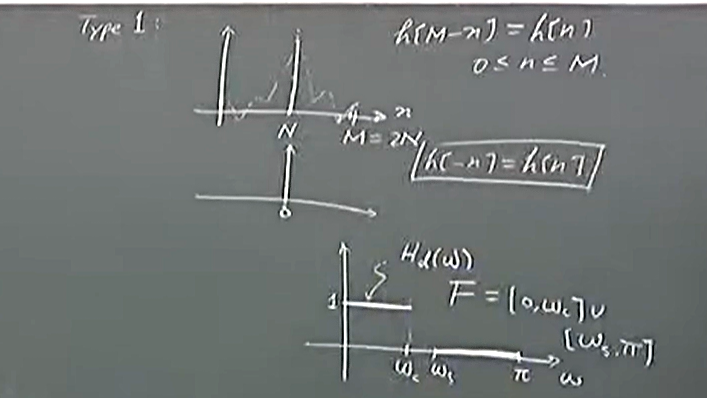 Type 1:
h[M-n] = h[n]
0 ≤ n ≤ M.
n
N
M = 2N
h[-n] = h[n]
0
H_d(ω)
1
F = [0, ω_c] ∪
[ω_s, π]
ω_c ω_s π ω